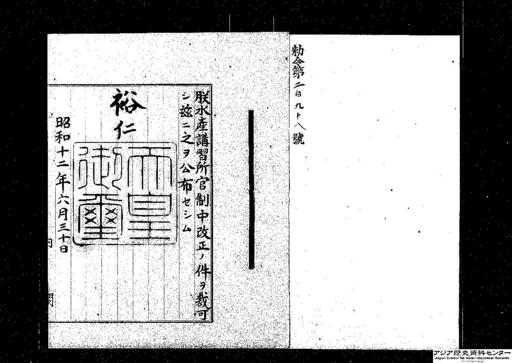 勅令第二百九十八號
朕水産講習所官制中改正ノ件ヲ裁可
シ茲ニ之ヲ公布セシム
裕仁
天皇
御璽
昭和十二年六月三十日
内閣
アジア歴史資料センター
Japan Center for Asian Historical Records